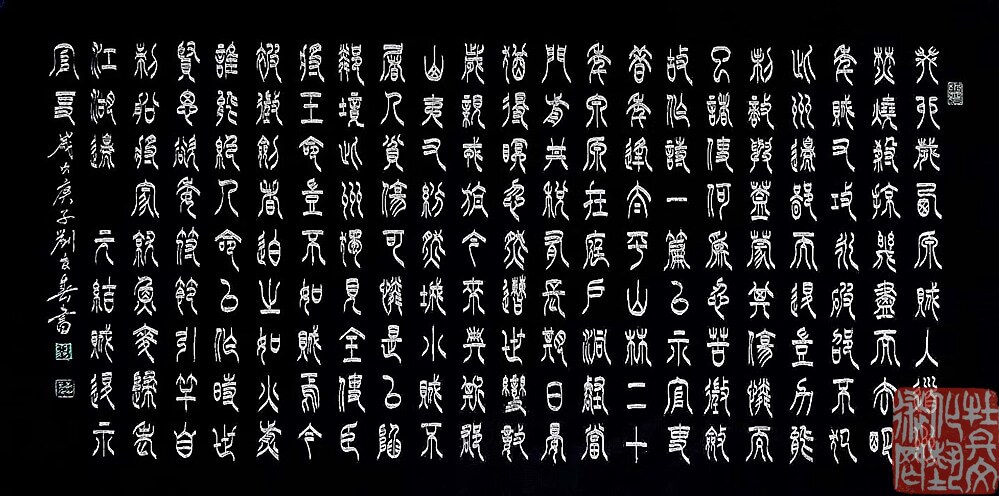 癸卯歲西原賊入道州
焚燒殺掠幾盡而去明
年賊又攻永破邵不犯
此州邊鄙而退豈力能
制敵與蓋蒙其傷憐而
只諸使何為忍苦徵斂
故作詩一篇以示官吏
昔年逢太平山林二十
年泉源在庭戶洞壑當
門前井稅有常期日晏
猶得眠忽然遭世變數
歲親戎旃今來典斯郡
山夷又紛然城小賊不
屠人貧傷可憐是以陷
鄰境此州獨見全使臣
將王命豈不如賊焉今
被徵斂者迫之如火煎
誰能絕人命以作時世
賢思欲委符節引竿自
刺船將家就魚麥歸老
江湖邊 元結賊退示
官吏 歲次庚子劉書